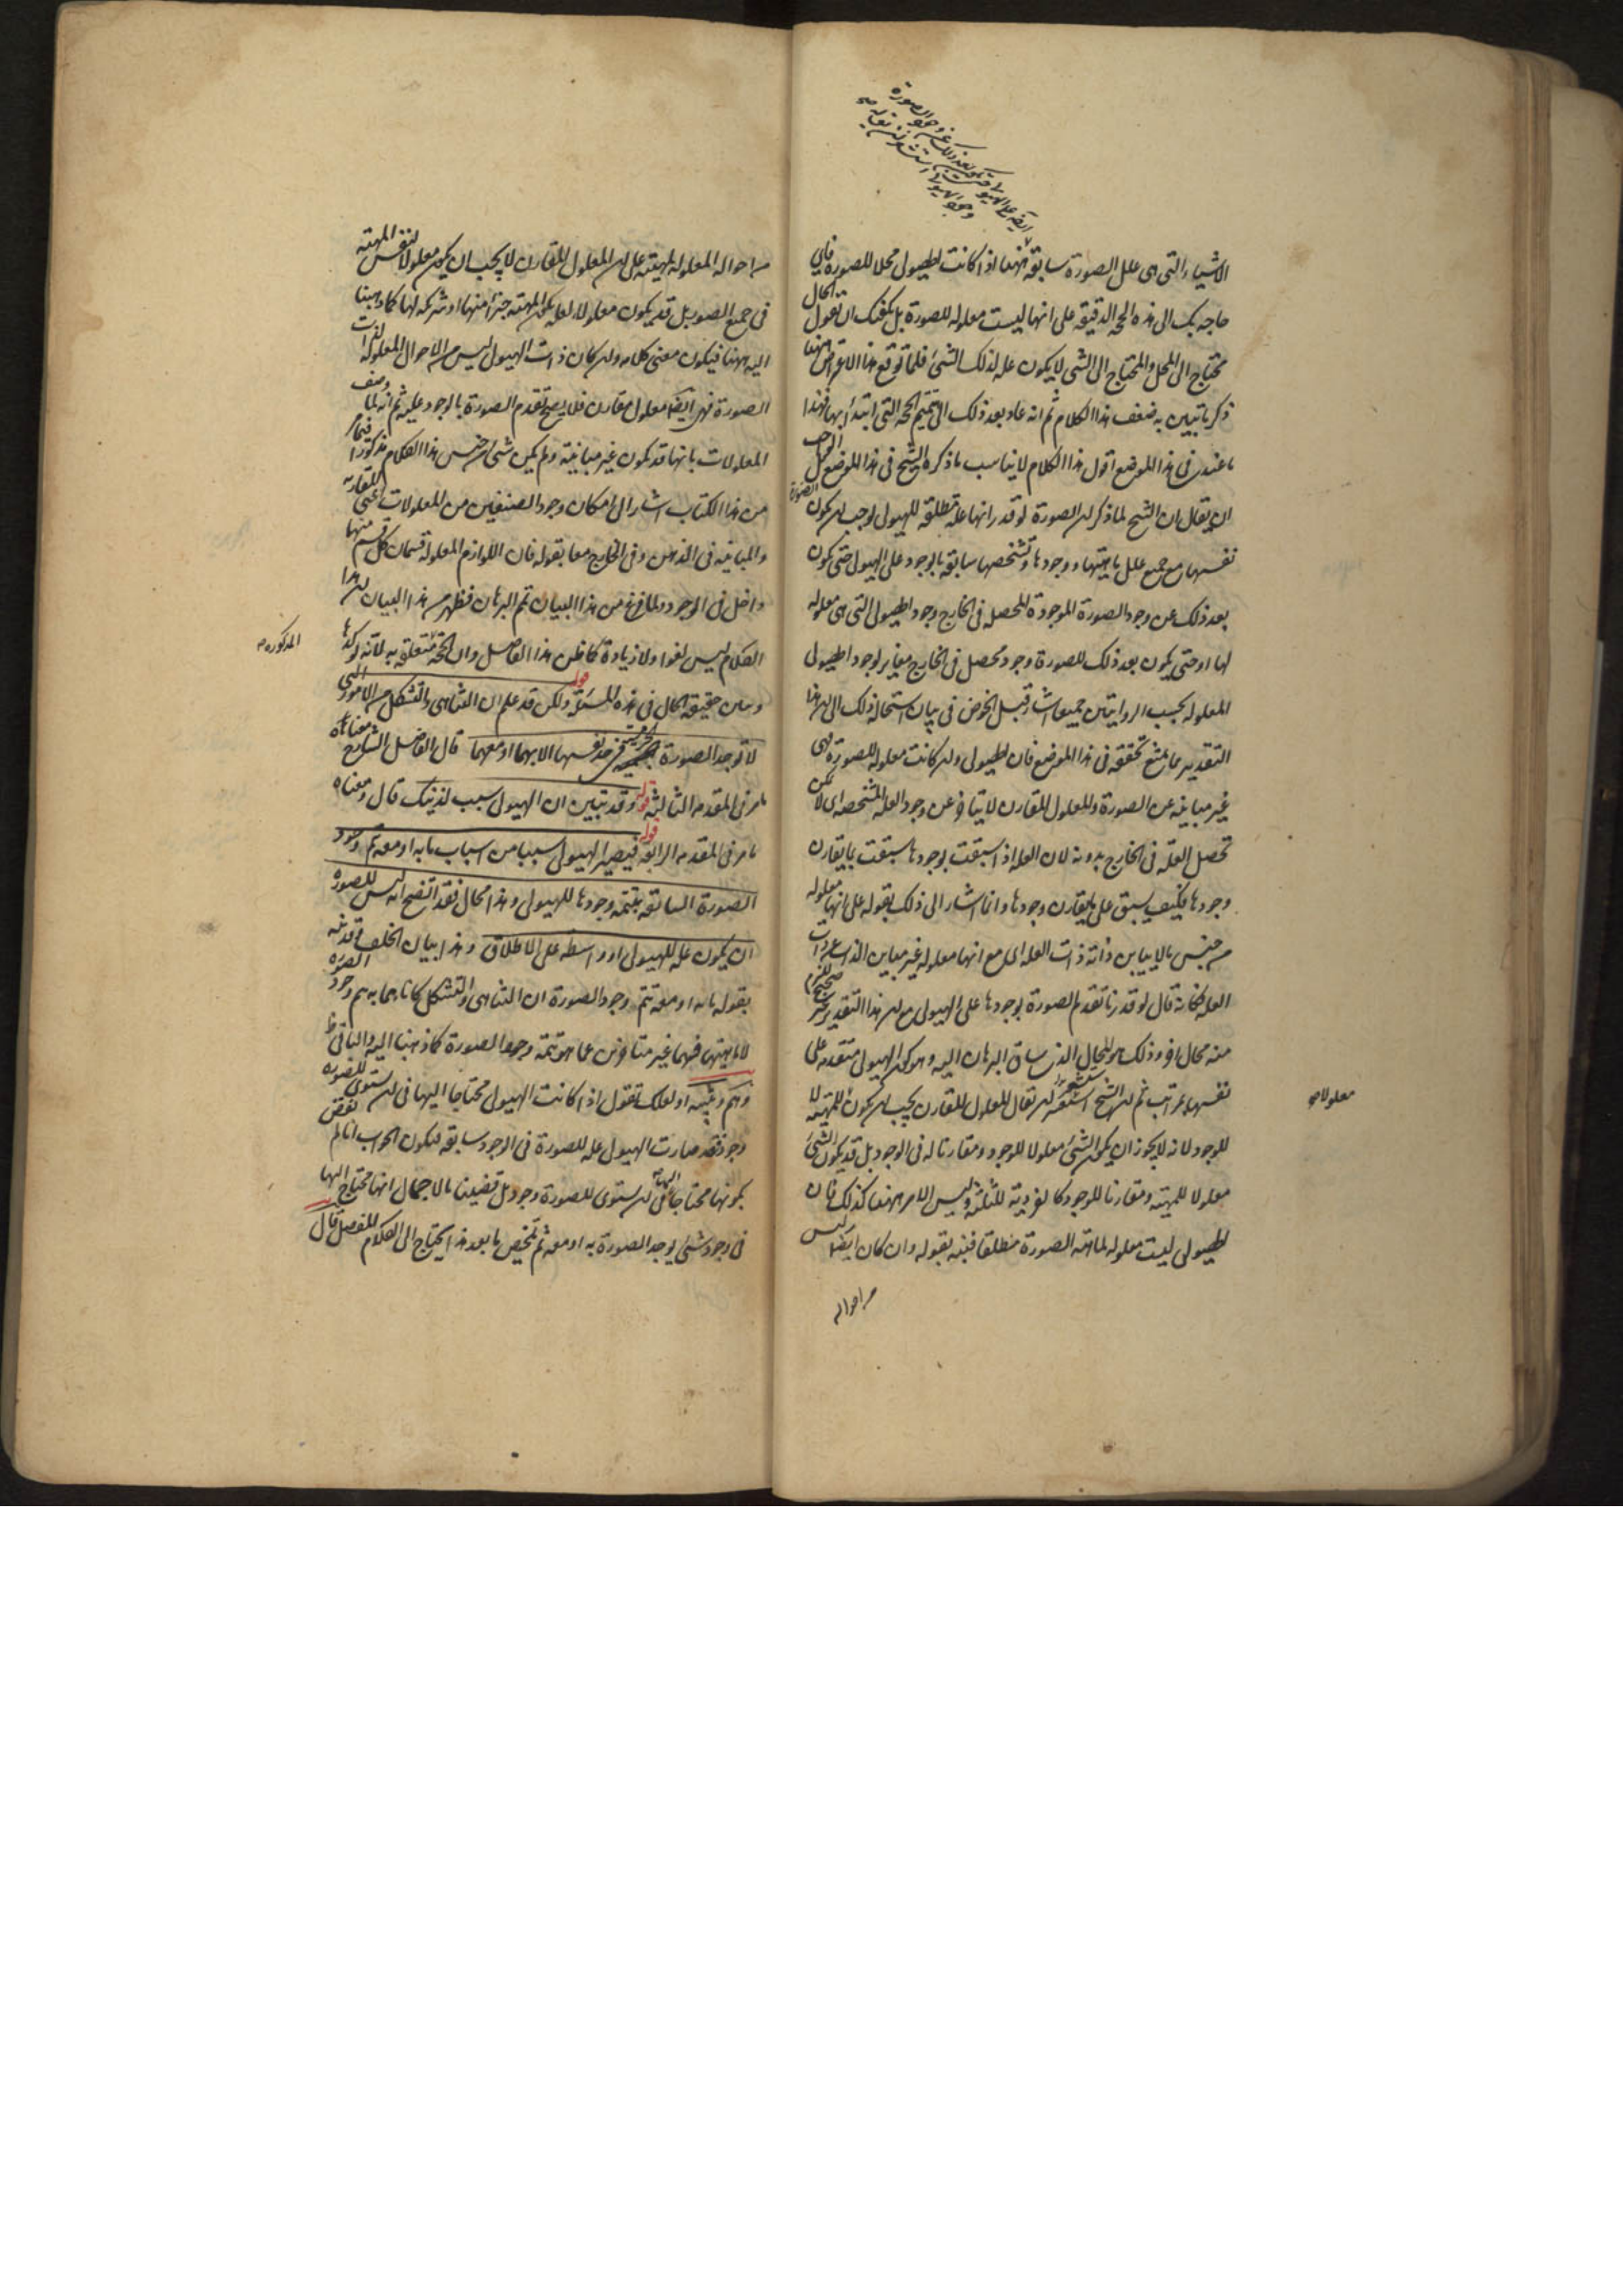 الاشياء التى هى علل الصورة سابقة ايضا اذا كانت الهيولى محلا للصورة فاى
حاجة بك الى هذه الحجة الدقيقة على انها ليست معلولة للصورة بل يكفيك ان تقول الحال
محتاج الى المحل والمحتاج الى الشى لا يكون علة لذلك الشئ فلما توقع هذا الاعتراض ههنا
ذكر ما تبين به ضعف هذا الكلام ثم انه عاد بعد ذلك الى تتميم الحجة التى ابتدأ بها فهذا
ما عندى فى هذا الموضع اقول هذا الكلام لا يناسب ما ذكره الشيخ فى هذا الموضع بل الواجب
ان يقال ان الشيخ لما ذكر ان الصورة لو قدر انها علة مطلقة للهيولى لوجب ان يكون الصورة
نفسها مع جميع علل ماهيتها ووجودها وتشخصها سابقة بالوجود على الهيولى حتى يكون
بعد ذلك عن وجود الصورة الموجودة المحصلة فى الخارج وجود الهيولى التى هى معلولة
لها او حتى يكون بعد ذلك للصورة وجود محصل فى الخارج مغاير لوجود الهيولى
المعلولة بحسب الروايتين جميعا اشار قبل الخوض فى بيان استحالة ذلك الى ان هذا
التقدير مما يمتنع تحققه فى هذا الموضع فان الهيولى وان كانت معلولة للصورة فهى
غير مباينة عن الصورة والمعلول المقارن لا يتأخر عن وجود العلة المشخصة اى لا يمكن
تحصل العلة فى الخارج بدونه لان العلة اذا سبقت بوجودها سبقت بما يقارن
وجودها فكيف يسبق على ما يقارن وجودها وانما اشار الى ذلك بقوله على انها معلولة
من جنس ما لا يباين ذاته ذات العلة اى مع انها معلولة غير مباين الذات عن ذات
العلة فكانه قال لو قدرنا تقدم الصورة بوجودها على الهيولى مع ان هذا التقدير غير صحيح لزم
منه محال اخر وذلك هو المحال الذى ساق البرهان اليه وهو كون الهيولى متقدمة على
نفسها بمراتب ثم ان الشيخ استشعر ان يقال المعلول المقارن يجب ان يكون للمهية لا
للوجود لانه لا يجوز ان يكون الشئ معلولا للوجود ومقارنا له فى الوجود بل قد يكون الشئ
معلولا للمهية ومقارنا للوجود كالفردية للثلثة وليس الامر ههنا كذلك فان
الهيولى ليست معلولة لماهية الصورة مطلقا فنبه بقوله وان كان ايضا ليس
من احواله
معلولا صح
من احواله المعلولة لمهيته على ان المعلول المقارن لا يجب ان يكون معلولا لنفس المهية
فى جميع الصور بل قد يكون معلولا لعلة تكون المهية جزأ منها او شريكة لها كما ذهبنا
اليه ههنا فيكون معنى كلامه وان كان ذات الهيولى ليس من الاحوال المعلولة لذات
الصورة فهى ايضا معلول مقارن فلا يصح تقدم الصورة بالوجود عليه ثم انه لما وصف
المعلولات بانها قد تكون غير مباينة ولم يكن شئ من جنس هذا الكلام مذكورا فيما مر
من هذا الكتاب اشار الى امكان وجود الصنفين من المعلولات اعنى المقارنة
والمباينة فى الذهن وفى الخارج معا بقوله فان اللوازم المعلولة قسمان كل قسم منهما
داخل فى الوجود ولما فرغ من هذا البيان تم البرهان فظهر من هذا البيان ان هذا
الكلام ليس لغوا ولا زيادة كما ظن هذا الفاضل وان الحجة متعلقة به لانه اوردها
المذكورة صح
وبين حقيقة الحال فى هذه المسئلة قوله ولكن قد علم ان التناهى والتشكل من الامور التى
لا توجد الصورة الجرمية فى حد نفسها الا بها او معها قال الفاضل الشارح معناه
ما مر فى المقدمة الثالثة قوله وقد تبين ان الهيولى سبب لذينك قال ومعناه
ما مر فى المقدمة الرابعة قوله فيصير الهيولى سببا من اسباب ما به او معه تتم وجود
الصورة السابقة بتتمة وجودها للهيولى وهذا محال فقد اتضح انه ليس للصورة
ان يكون علة للهيولى او واسطة على الاطلاق وهذا بيان الخلف وقد نبه
بقوله ما به او معه تتم وجود الصورة ان التناهى والتشكل كانا مما به تم وجود الصورة
لا ماهيتها فهما غير متأخرين عما هو تتمة وجود الصورة كما ذهبنا اليه والباقى ظ
وهم وتنبيه او لعلك تقول اذا كانت الهيولى محتاجا اليها فى ان يستوى للصورة
وجود فقد صارت الهيولى علة للصورة فى الوجود سابقة فيكون الجواب انا لم نقض
بكونها محتاجا اليها فى ان يستوى للصورة وجود بل قضينا بالاجمال انها محتاج اليها
فى وجود شئ يوجد الصورة به او معه ثم تلخيص ما بعد هذا يحتاج الى الكلام المفصل قال